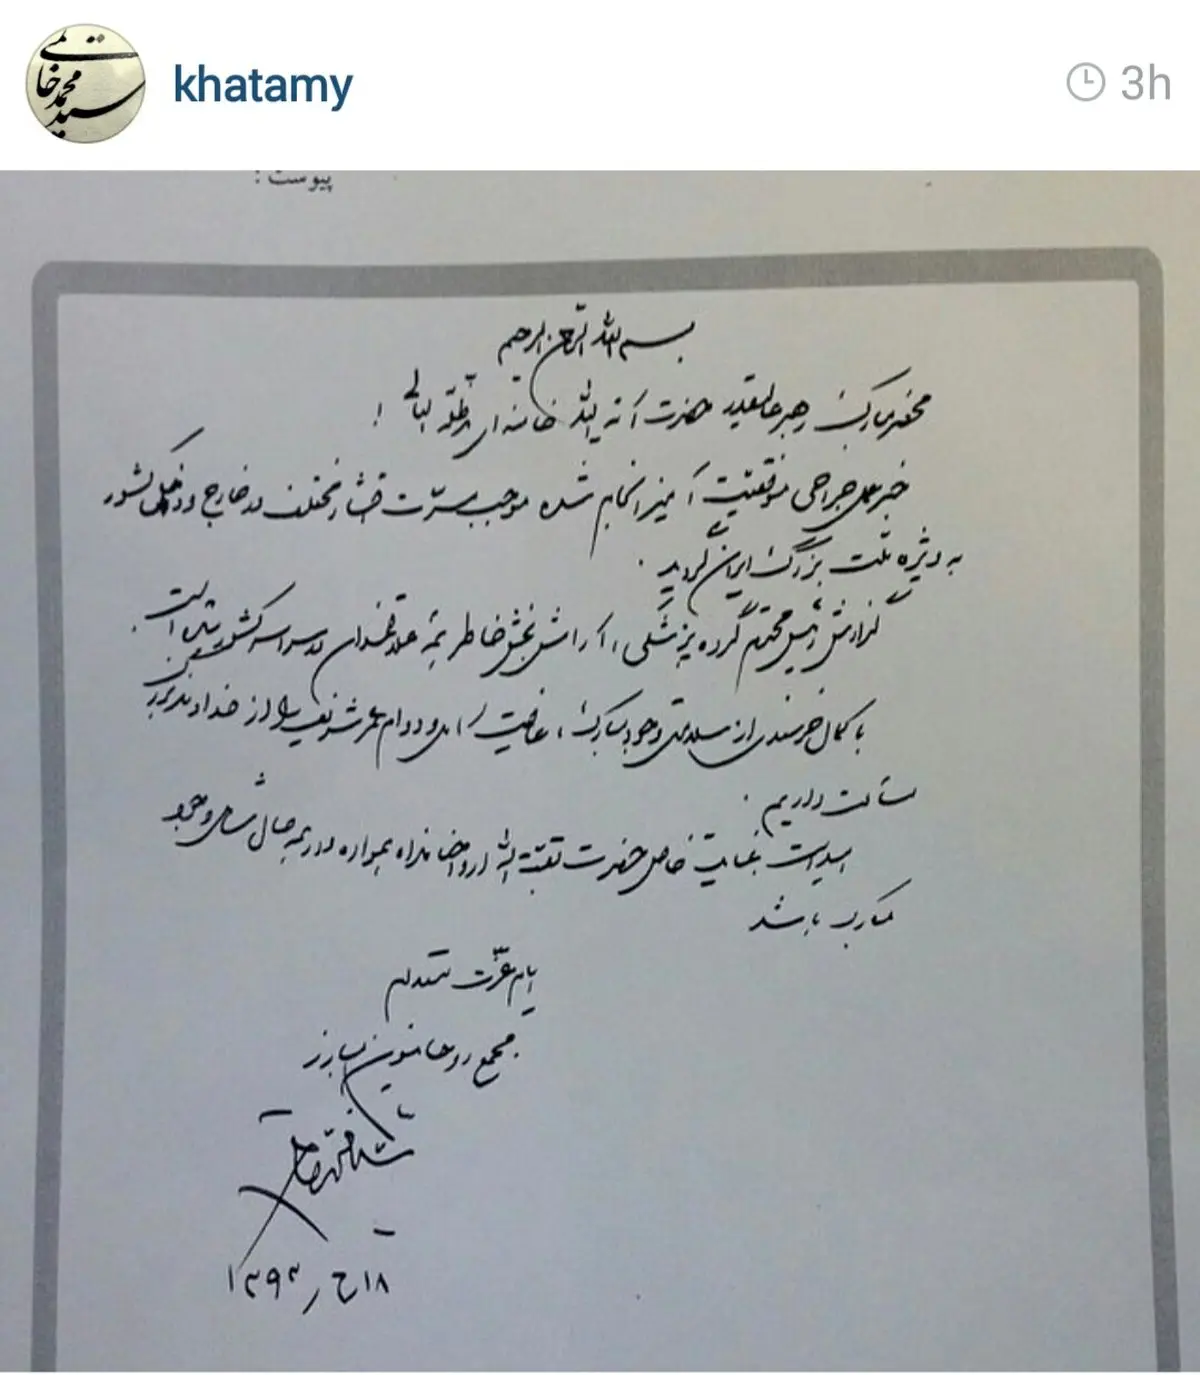 سید محمد خاتمی
khatamy
3h
پیوست :
بسم الله الرحمن الرحیم
محضر مبارک رهبر عالیقدر حضرت آیة الله خامنه ای مدّ ظلّه العالی !
خبر عمل جراحی موفقیّت آمیز انجام شده موجب مسرّت اقشار مختلف در خارج و داخل کشور
به ویژه ملت بزرگ ایران گردید .
گزارش رئیس محترم گروه پزشکی ، آرامش بخش خاطر همه علاقمندان در سراسر کشور است .
با کمال خرسندی از سلامتی وجود مبارک ، عافیت و دوام عمر شریف را از خداوند
مسألت داریم .
امید است عنایت خاص حضرت بقیّة الله ارواحنا فداه همواره و در همه حال شامل وجود
مبارک باشد
ایام عزّت مستدام
مجمع روحانیون مبارز
۱۸ ر ۱۳۹۳